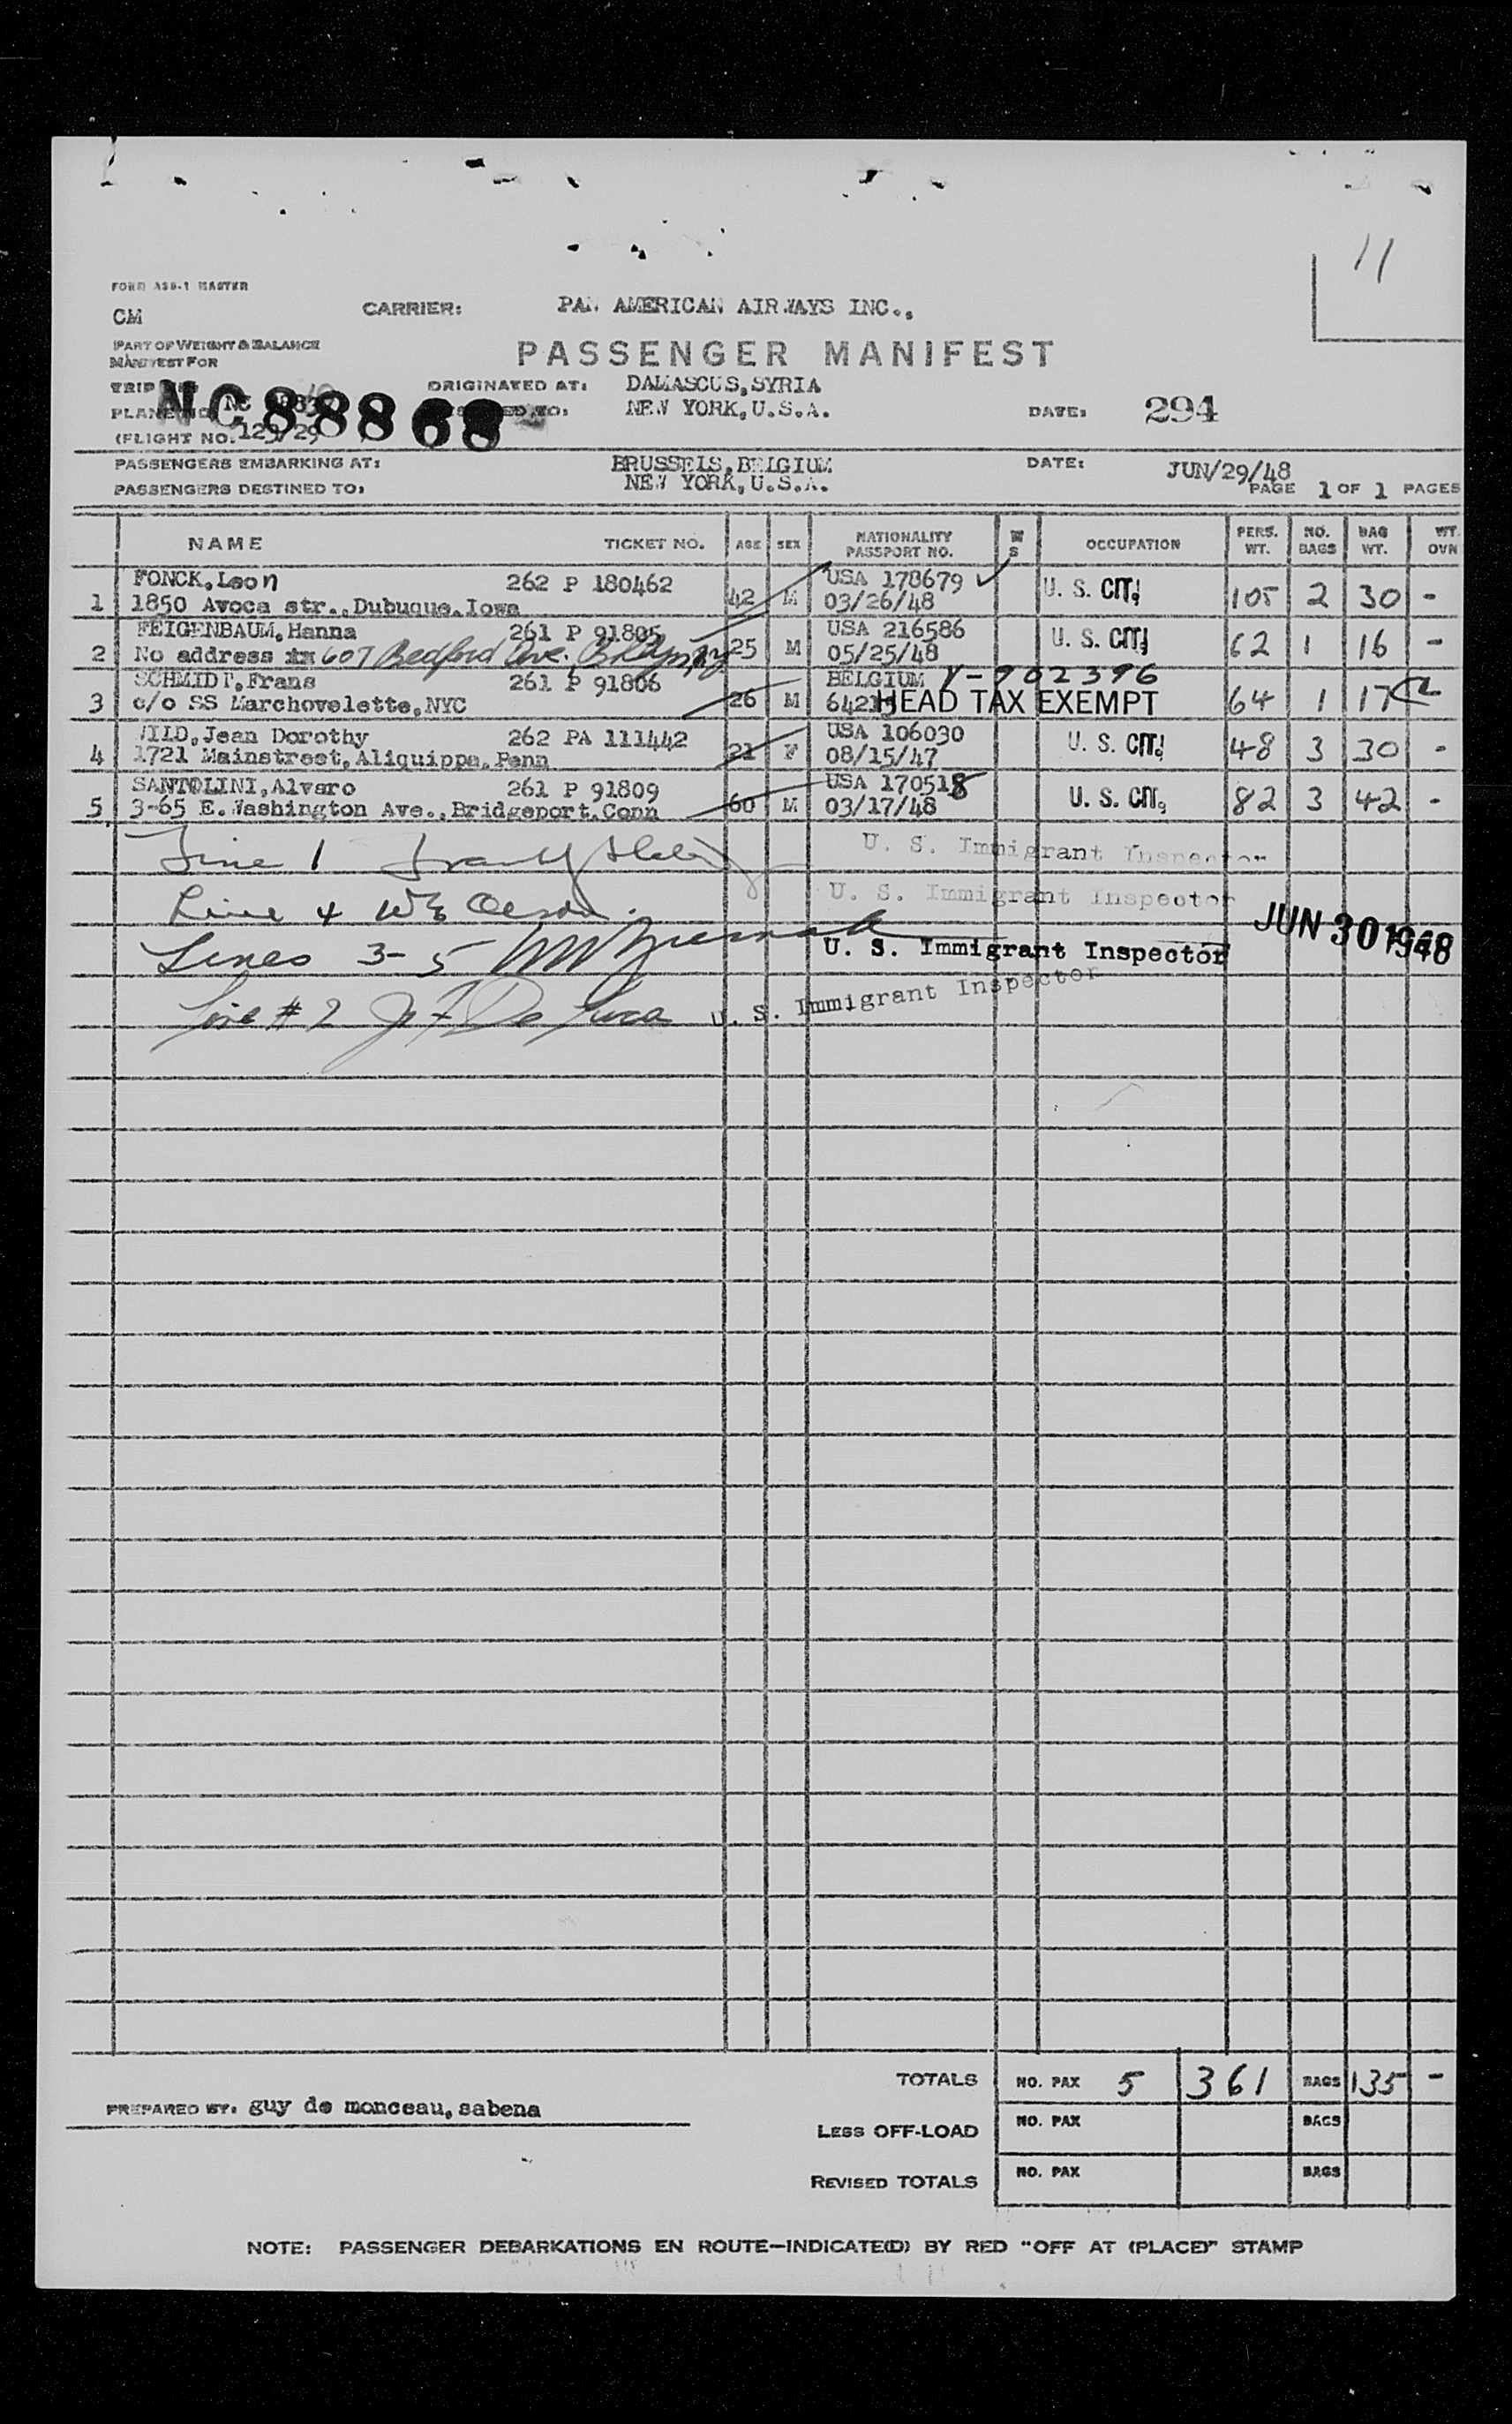 11
FORM ASB-1 MASTER
CM CARRIER: PAN AMERICAN AIRWAYS INC.,
PART OF WEIGHT & BALANCE
MANIFEST FOR
PASSENGER MANIFEST
TRIP ORIGINATED AT: DAMASCUS, SYRIA
PLANE NO. NC 88868 NEW YORK, U.S.A. DATE: 294
(FLIGHT NO. 129/29
PASSENGERS EMBARKING AT: BRUSSELS, BELGIUM DATE: JUN/29/48
PASSENGERS DESTINED TO: NEW YORK, U.S.A. PAGE 1 OF 1 PAGES
NAME TICKET NO. AGE SEX NATIONALITY PASSPORT NO. OCCUPATION PERS. WT. NO. BAGS BAG WT. WT. OVN
FONCK, Leon 262 P 180462 USA 178679 ✓
1 1850 Avoca str., Dubuque. Iowa 42 M 03/26/48 U. S. CIT. 105 2 30 -
FEIGENBAUM, Hanna 261 P 91805 USA 216586
2 No address 607 Bedford Ave. Bklyn NY 25 M 05/25/48 U. S. CIT. 62 1 16 -
SCHMIDT, Frans 261 P 91806 BELGIUM V-902396
3 c/o SS Marchovelette, NYC 26 M HEAD TAX EXEMPT 64 1 17
WILD, Jean Dorothy 262 PA 111442 USA 106030
4 1721 Mainstreet, Aliquippa. Penn 21 F 08/15/47 U. S. CIT. 48 3 30 -
SANTOLINI, Alvaro 261 P 91809 USA 170518
5 3-65 E. Washington Ave., Bridgeport. Conn 60 M 03/17/48 U. S. CIT. 82 3 42 -
Line 1 U. S. Immigrant Inspector
Line 4 W E Olson. U. S. Immigrant Inspector
JUN 30 1948
Lines 3-5 U. S. Immigrant Inspector
Line # 2 J F De Luca U. S. Immigrant Inspector
TOTALS NO. PAX 5 361 BAGS 135 -
PREPARED BY: guy de monceau, sabena
LESS OFF-LOAD NO. PAX BAGS
REVISED TOTALS NO. PAX BAGS
NOTE: PASSENGER DEBARKATIONS EN ROUTE—INDICATE(D) BY RED "OFF AT (PLACE)" STAMP